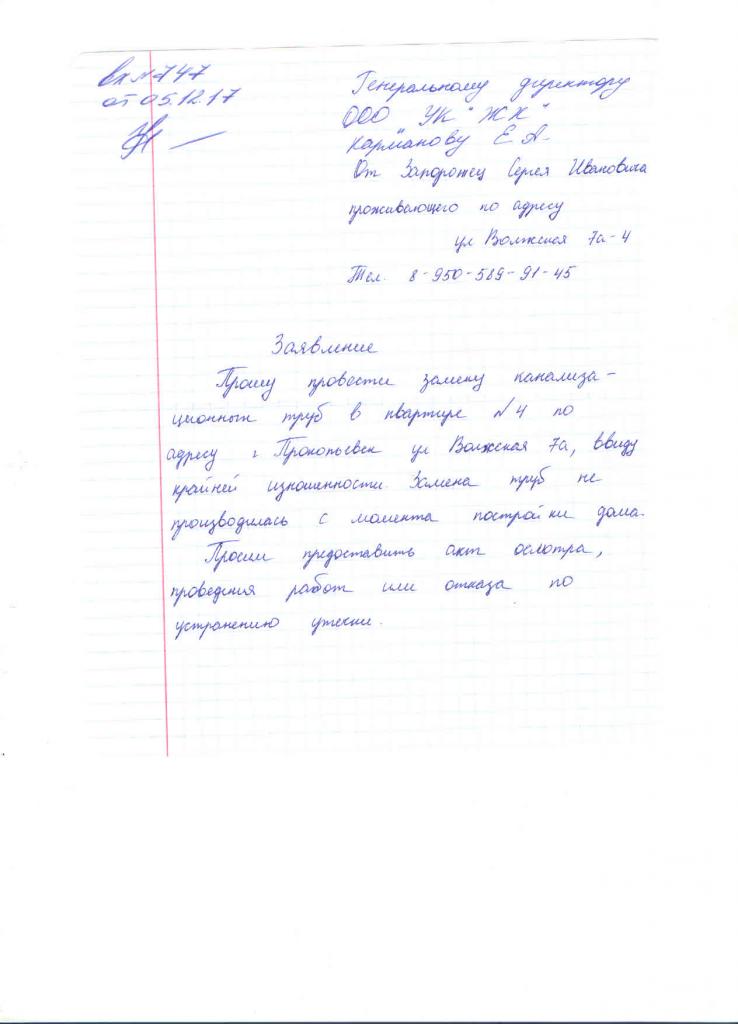 вх №747
от 05.12.17
Генеральному директору
ООО УК "ЖХ"
Карманову Е А.
От Запорожец Сергея Ивановича
проживающего по адресу
ул Волжская 7а-4
Тел. 8-950-589-91-45
Заявление
Прошу провести замену канализа-
ционных труб в квартире №4 по
адресу г Прокопьевск ул Волжская 7а, ввиду
крайней изношенности. Замена труб не
производилась с момента постройки дома.
Просим предоставить акт осмотра,
проведения работ или отказа по
устранению утечки.